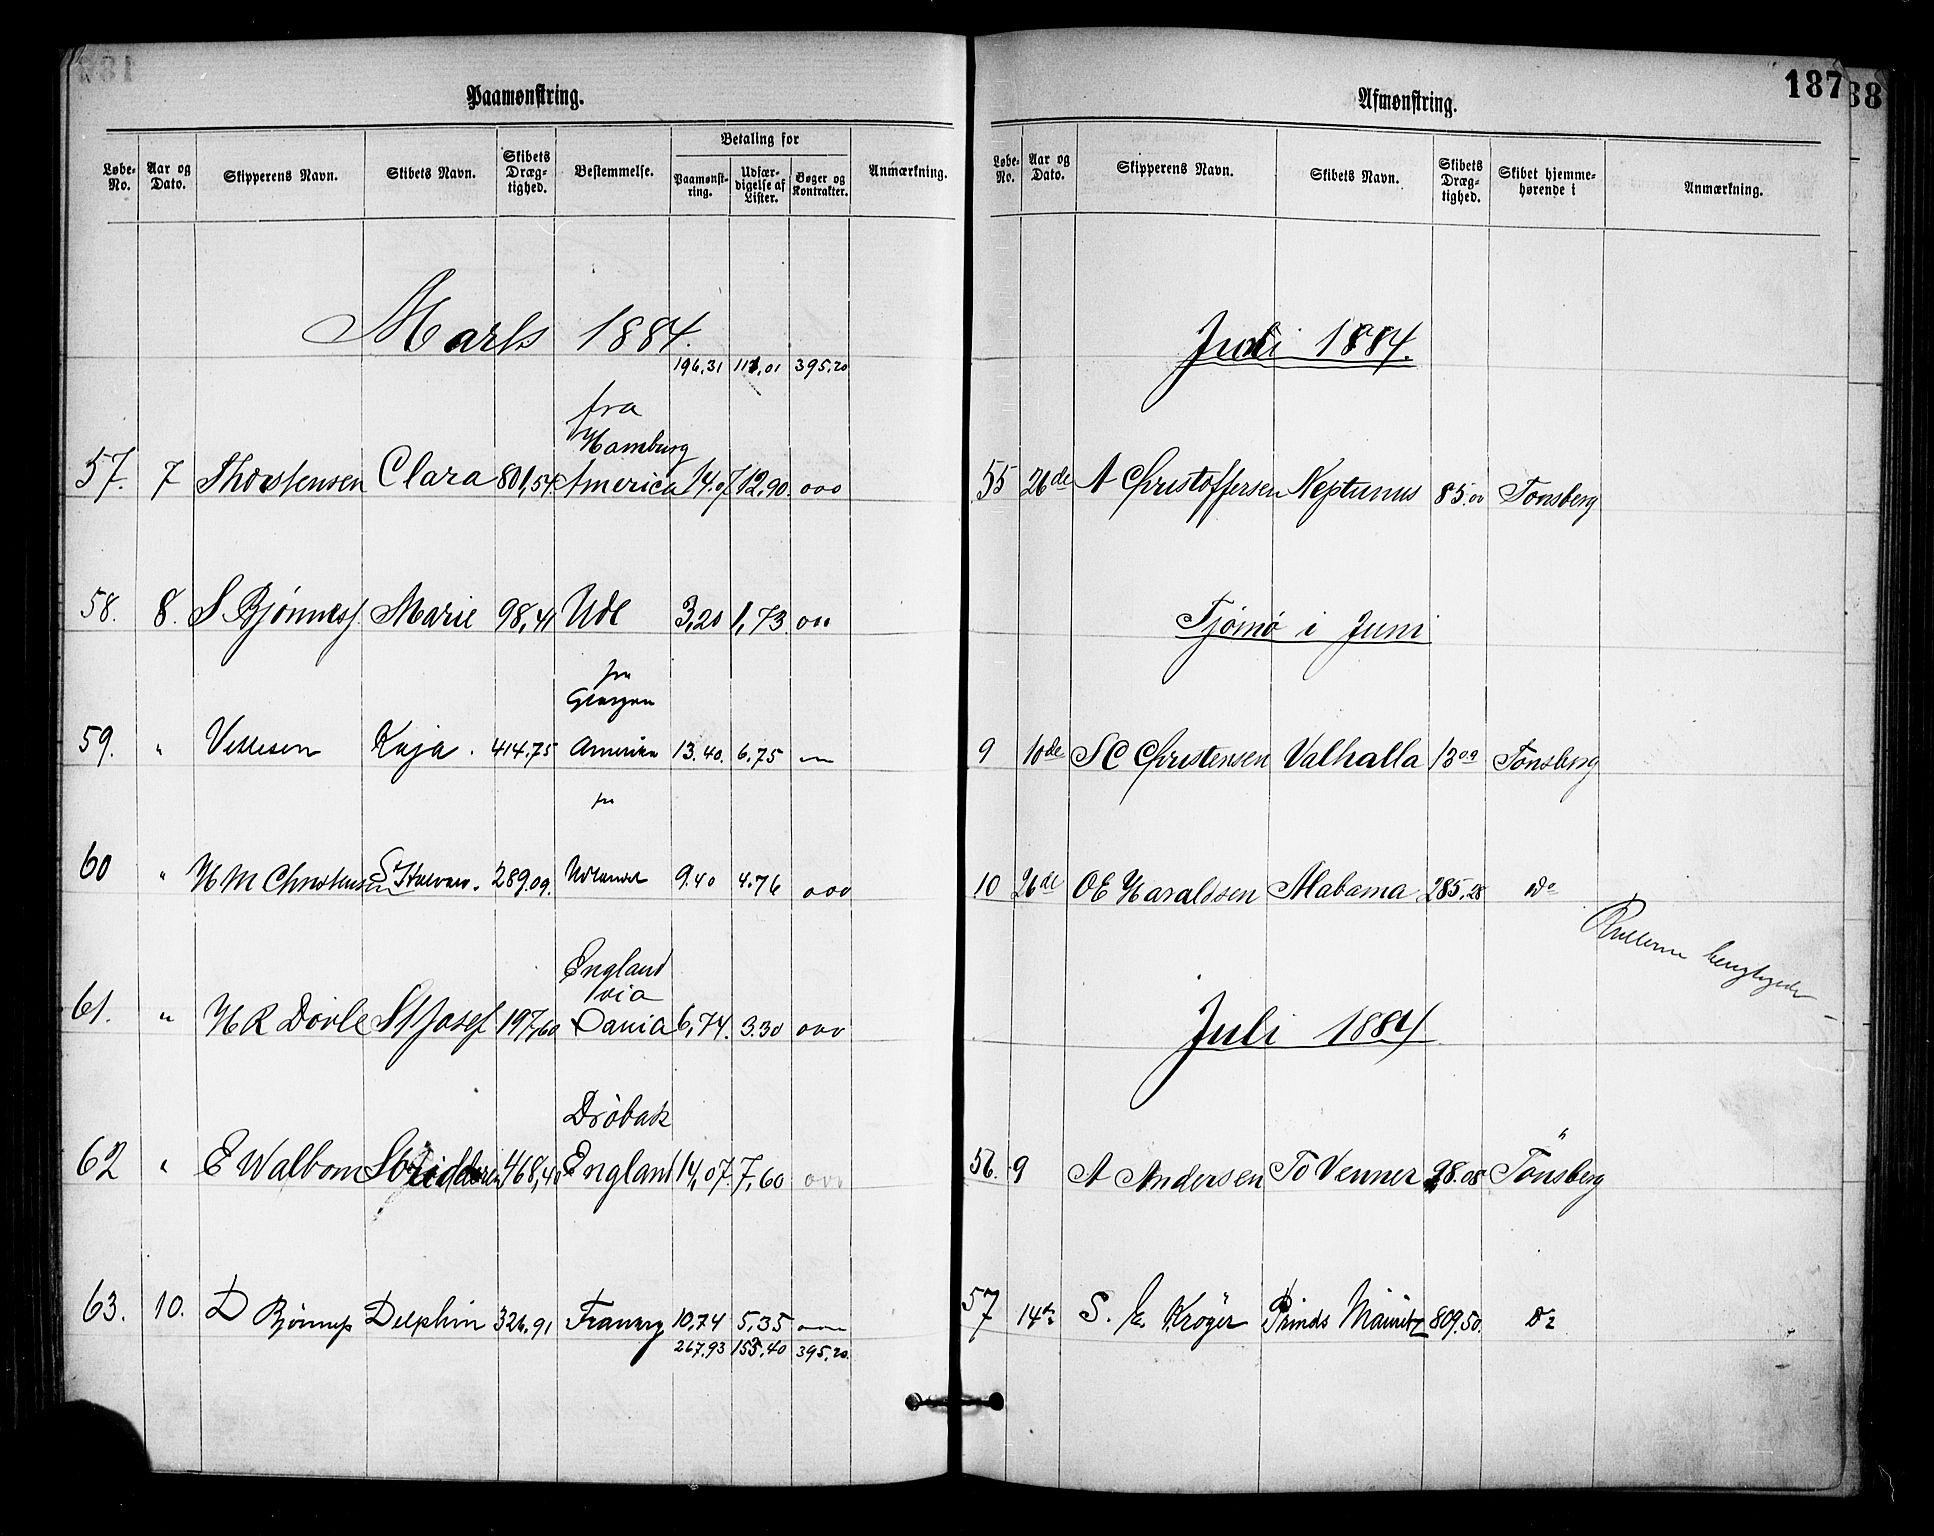 Paamønstring.
Betaling for
Løbe-No. Aar og Dato. Skipperens Navn. Skibets Navn. Skibets Dræg-tighed. Bestemmelse. Paamønst-ring. Udfær-digelse af Lister. Bøger og Kontrakter. Anmærkning.
Marts 1884.
196.31 111.01 395.20
fra
Hamburg
57. 7 Thorstensen Clara 801,54 America 14.07 12.90. ooo
58. 8. S Bjønness. Marie 98,41 Udl 3,20 1,73. oo
fra
Glasgow
59. " Vettesen Kaja. 414.75 Amerika 13.40. 6.75
fra
60 " H M Christensen St Halvard. 289.09. Udlandet 9.40 4.76 ooo
England
via
61. " H R Dovle St Josef 197,60 Dania 6,74. 3.30 ooo
Drøbak
62 " E Walbom 468,40 England 14,07. 7,60 ooo
63. 10. D Bjønness Delphin 326.91 10,74 5,35
267.93 155.40 395.20.
187
88
Afmønstring.
Løbe-No. Aar og Dato. Skipperens Navn. Skibets Navn. Skibets Dræg-tighed. Skibet hjemme-hørende i Anmærkning.
Juli 1884.
55 26de A Christoffersen Neptunus 85.00 Tønsberg
Tjømø i Juni
9 10de S C Christensen Valhalla 13 Tønsberg
10 26de O E Haraldsen Alabama 285,28 Do
Rullerne
Juli 1884
56. 9 A Andersen To Venner 98.08 Tönsberg
57 14de S. E. Krøger Prinds Mauritz 809.50. Do